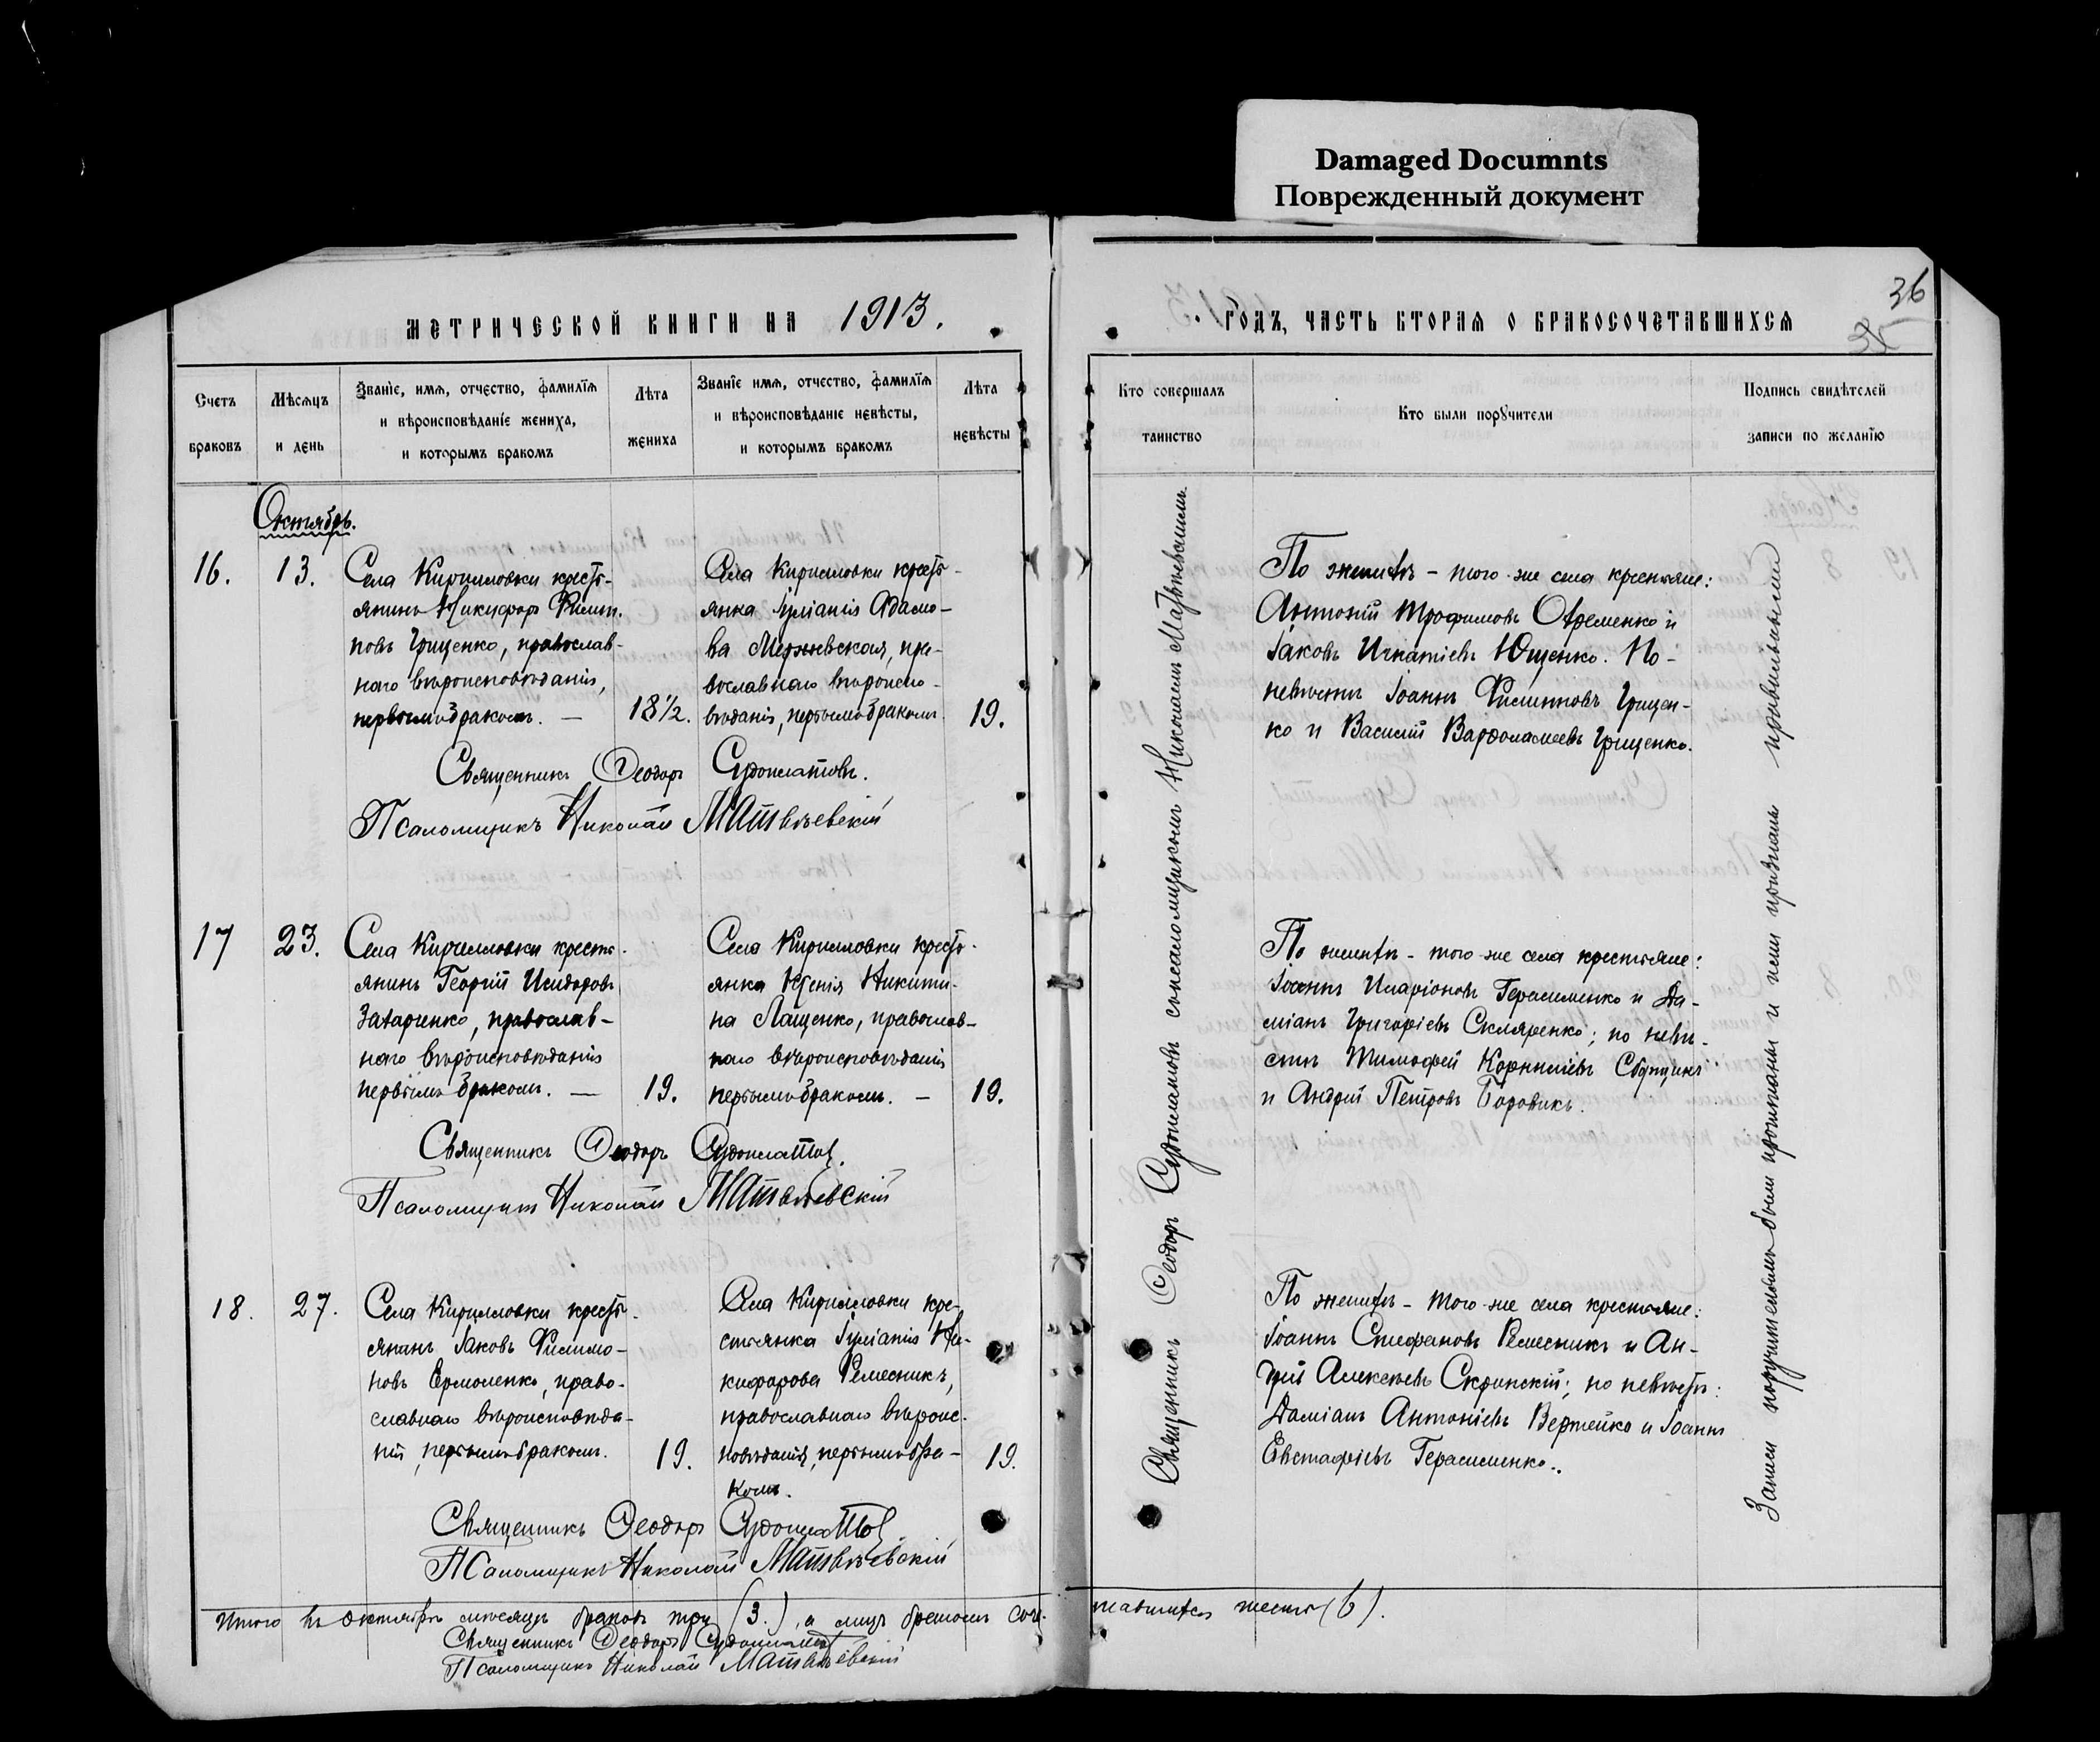 Damaged Documnts
Поврежденный документ
метрической книги на 1913.
годъ, часть вторая о бракосочетавшихся
36
Счетъ браковъ
Мѣсяцъ и день
Званіе, имя, отчество, фамилія
и вѣроисповѣданіе жениха,
и которымъ бракомъ
Лѣта жениха
Званіе имя, отчество, фамилія
и вѣроисповѣданіе невѣсты,
и которымъ бракомъ
Лѣта невѣсты
Кто совершалъ таинство
Кто были поручители
Подпись свидѣтелей
записи по желанію
Октябрь.
16.
13.
Села Кирилловки кресть-
янинъ Никифоръ Филип-
повъ Грищенко, православ-
наго вѣроисповѣданія,
первымъ бракомъ. —
18½.
Села Кирилловки кресть-
янка Іуліанія Адамо-
ва, пра-
вославнаго вѣроиспо-
вѣданія, первымъ бракомъ.
19.
Священникъ Ѳеодоръ Судоплатовъ.
Псаломщикъ Николай Матвѣевскій
По женихѣ - того-же села крестьяне:
Антоній Трофимовъ Ефременко и
Іаковъ Игнатіевъ Ющенко. По-
невѣстѣ Іоаннъ Филипповъ Грищен-
ко и Василій Варѳоломеевъ Грищенко.
17
23.
Села Кирилловки кресть-
янинъ Георгій Исидоровъ
Захарченко, православ-
наго вѣроисповѣданія
первымъ бракомъ. —
19.
Села Кирилловки кресть-
янка Ксенія Никити-
на Лащенко, православ-
наго вѣроисповѣданія
первымъ бракомъ. —
19.
Священникъ Ѳеодоръ Судоплатовъ.
Псаломщикъ Николай Матвѣевскій
По женихѣ - того-же села крестьяне:
Іоаннъ Иларіоновъ Герасименко и Да-
міанъ Григоріевъ Скляренко; по невѣ-
стѣ Тимофей Корниліевъ
и Андрей Петровъ Боровикъ.
18.
27.
Села Кирилловки кресть-
янинъ Іаковъ Филимо-
новъ Ермоленко, право-
славнаго вѣроисповѣда-
нія, первымъ бракомъ.
19.
Села Кирилловки кре-
стьянка Іуліанія Ни-
кифорова Ремесникъ,
православнаго вѣроис-
повѣданія, первымъ бра-
комъ.
19.
Священникъ Ѳеодоръ Судоплатовъ
Псаломщикъ Николай Матвѣевскій
По женихѣ - того-же села крестьяне:
Іоаннъ Стефановъ Ремесникъ и Ан-
дрей Алексѣевъ Скрипскій; по невѣстѣ:
Даміанъ Антоніевъ Вертейко и Іоаннъ
Евстафіевъ Герасименко.
Священникъ Ѳеодоръ Судоплатовъ съ псаломщикомъ Николаемъ Матвѣевскимъ.
Записи поручителямъ были прочитаны и ими признаны правильными
Итого въ октябрѣ мѣсяцѣ браковъ три (3.), а лицъ бракомъ соче-
тавшихся шесть (6).
Священникъ Ѳеодоръ Судоплатовъ
Псаломщикъ Николай Матвѣевскій